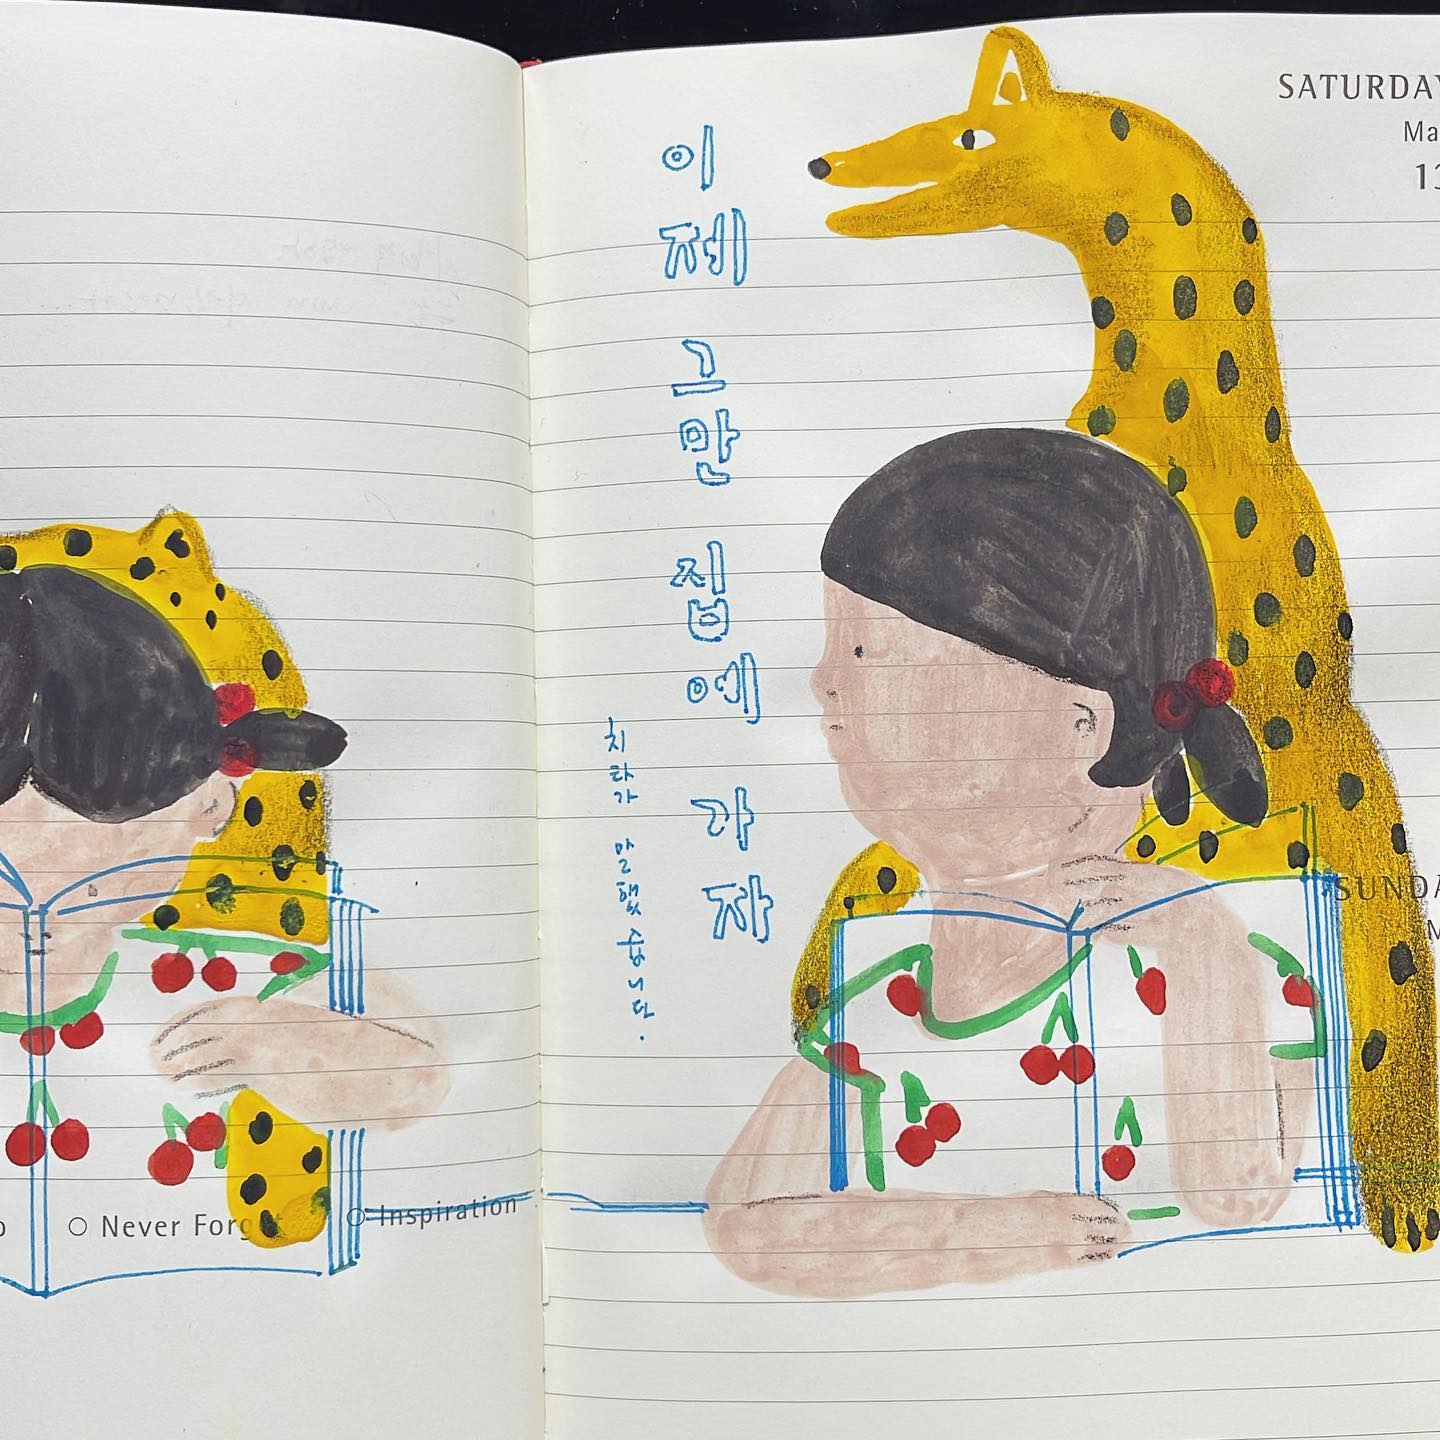 이제 그만 집에 가자
치타가 말했습니다.
SATURDAY
Ma
13
SUNDA
M
Never Forget
Inspiration